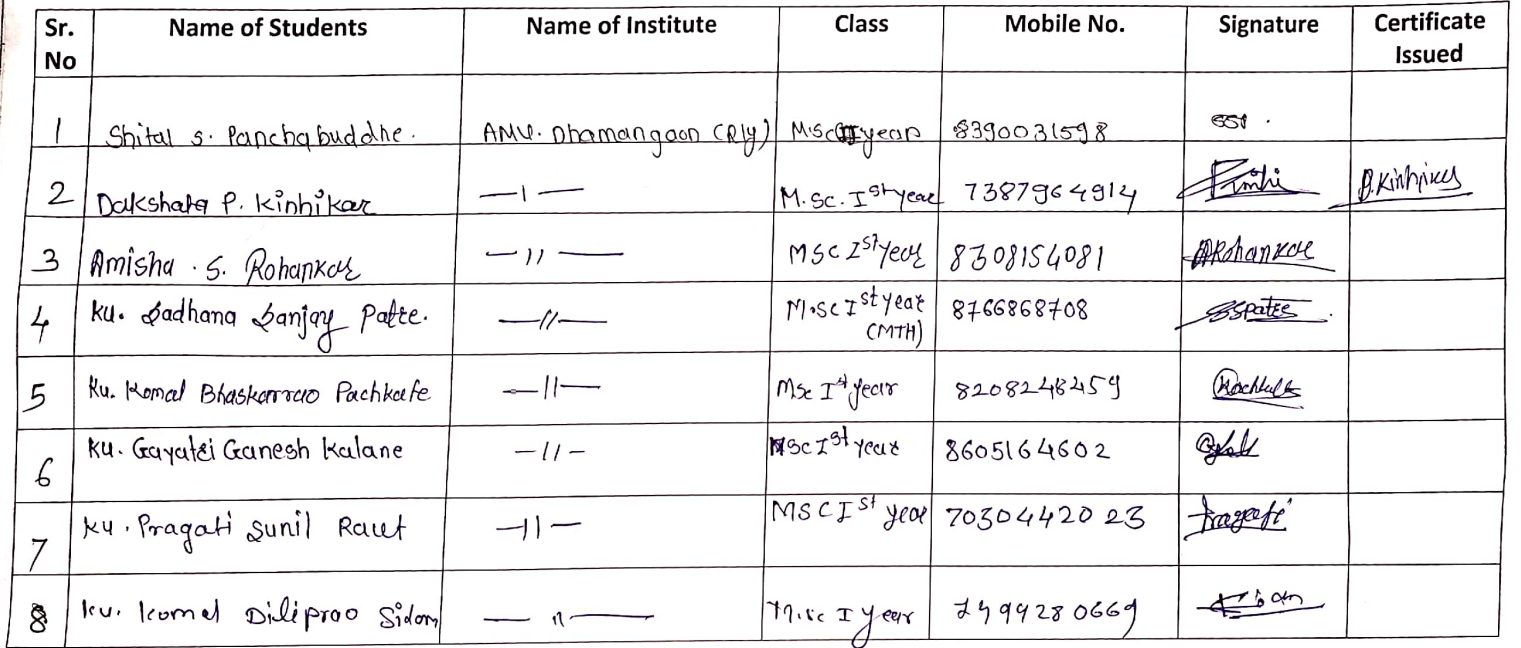 Sr. No Name of Students Name of Institute Class Mobile No. Signature Certificate Issued
1 Shital S. Panchabuddhe. AMV. Dhamangaon (Rly) M.Sc II year 8390031598
2 Dakshata P. Kinhikar —1— M.Sc. Ist year 7387964914 P.Kinhikar
3 Amisha . S. Rohankar —11— MSC Ist year 8308154081 ARohankar
4 Ku. Sadhana Sanjay Patte. —11— M.Sc Ist year (MTH) 8766868708 SSpatte.
5 Ku. Komal Bhaskarrao Pachkate —11— Msc Ist year 8208248459
6 Ku. Gayatri Ganesh Kalane —11— MSc Ist year 8605164602
7 Ku. Pragati Sunil Raut —11— MSC Ist year 7030442023 Pragati
8 Ku. Komal Diliprao Sidam —11— M.sc I year 7499280669